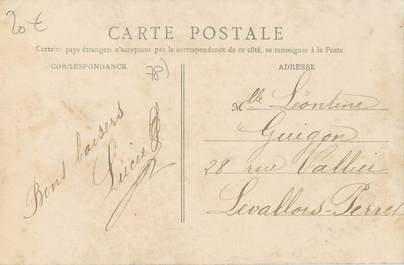 20 €
CARTE POSTALE
Certains pays étrangers n'acceptant pas la correspondance de ce côté, se renseigner à la Poste
CORRESPONDANCE
78)
ADRESSE
Bons baisers
Lucie
Mlle Léontine
Guigon
28 rue Vallier
Levallois-Perret